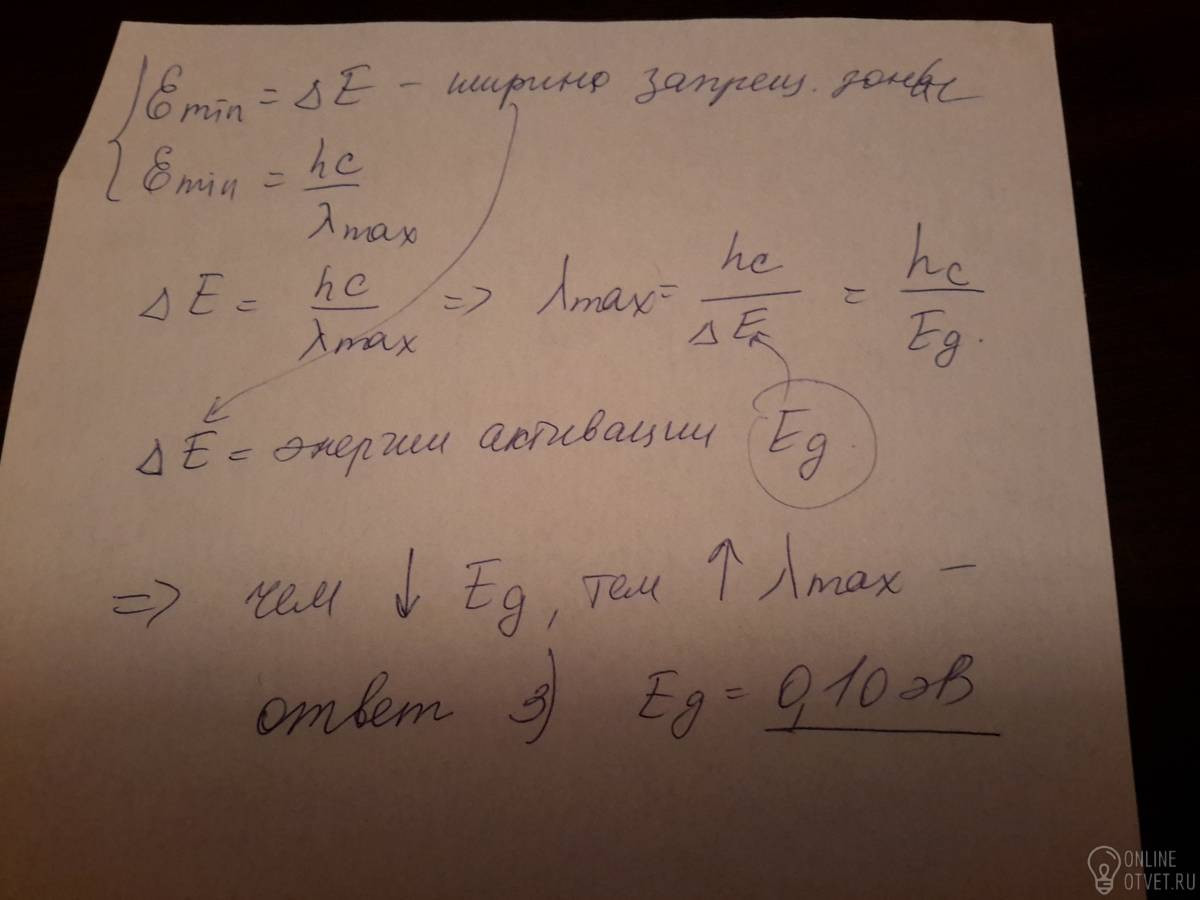 Ɛmin = ΔE – ширина запрещ. зоны
Ɛmin = hc / λmax
ΔE = hc / λmax => λmax = hc / ΔE = hc / Eg.
ΔE = энергии активации Eg.
=> чем ↓ Eg, тем ↑ λmax –
ответ 3) Eg = 0,10 эВ
ONLINE
OTVET.RU